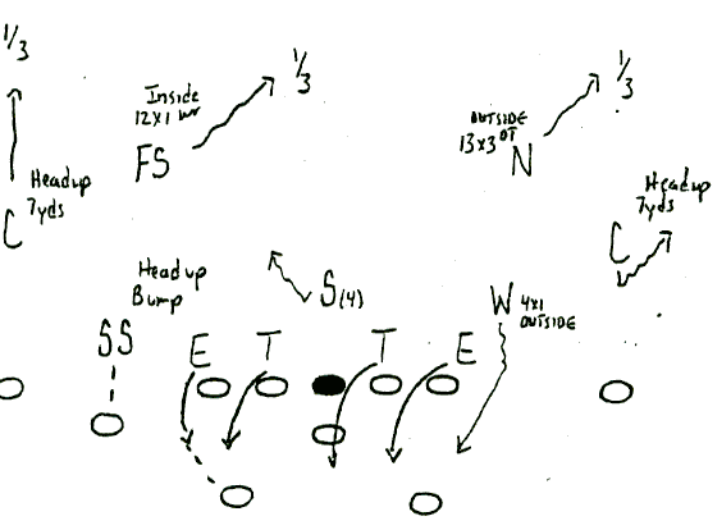 1/3
1/3
1/3
Inside
12x1 wr
OUTSIDE
13x3 OT
FS
N
Headup
7yds
C
Headup
7yds
C
Headup
Bump
S(4)
W 4x1
OUTSIDE
SS
E T T E